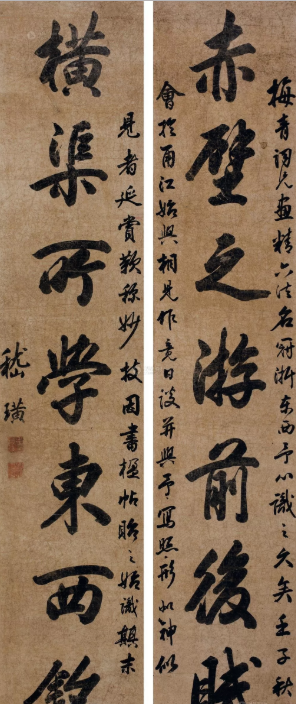 梅青詞兄画精六法名冠浙东西予心識之久矣壬子秋
赤壁之游前後賦
會於甬江始與相見作竟日談并與予寫照形神似
見者延賞歎稱妙技因書楹帖貽之識顛末
橫渠所學東西銘
嵇璜